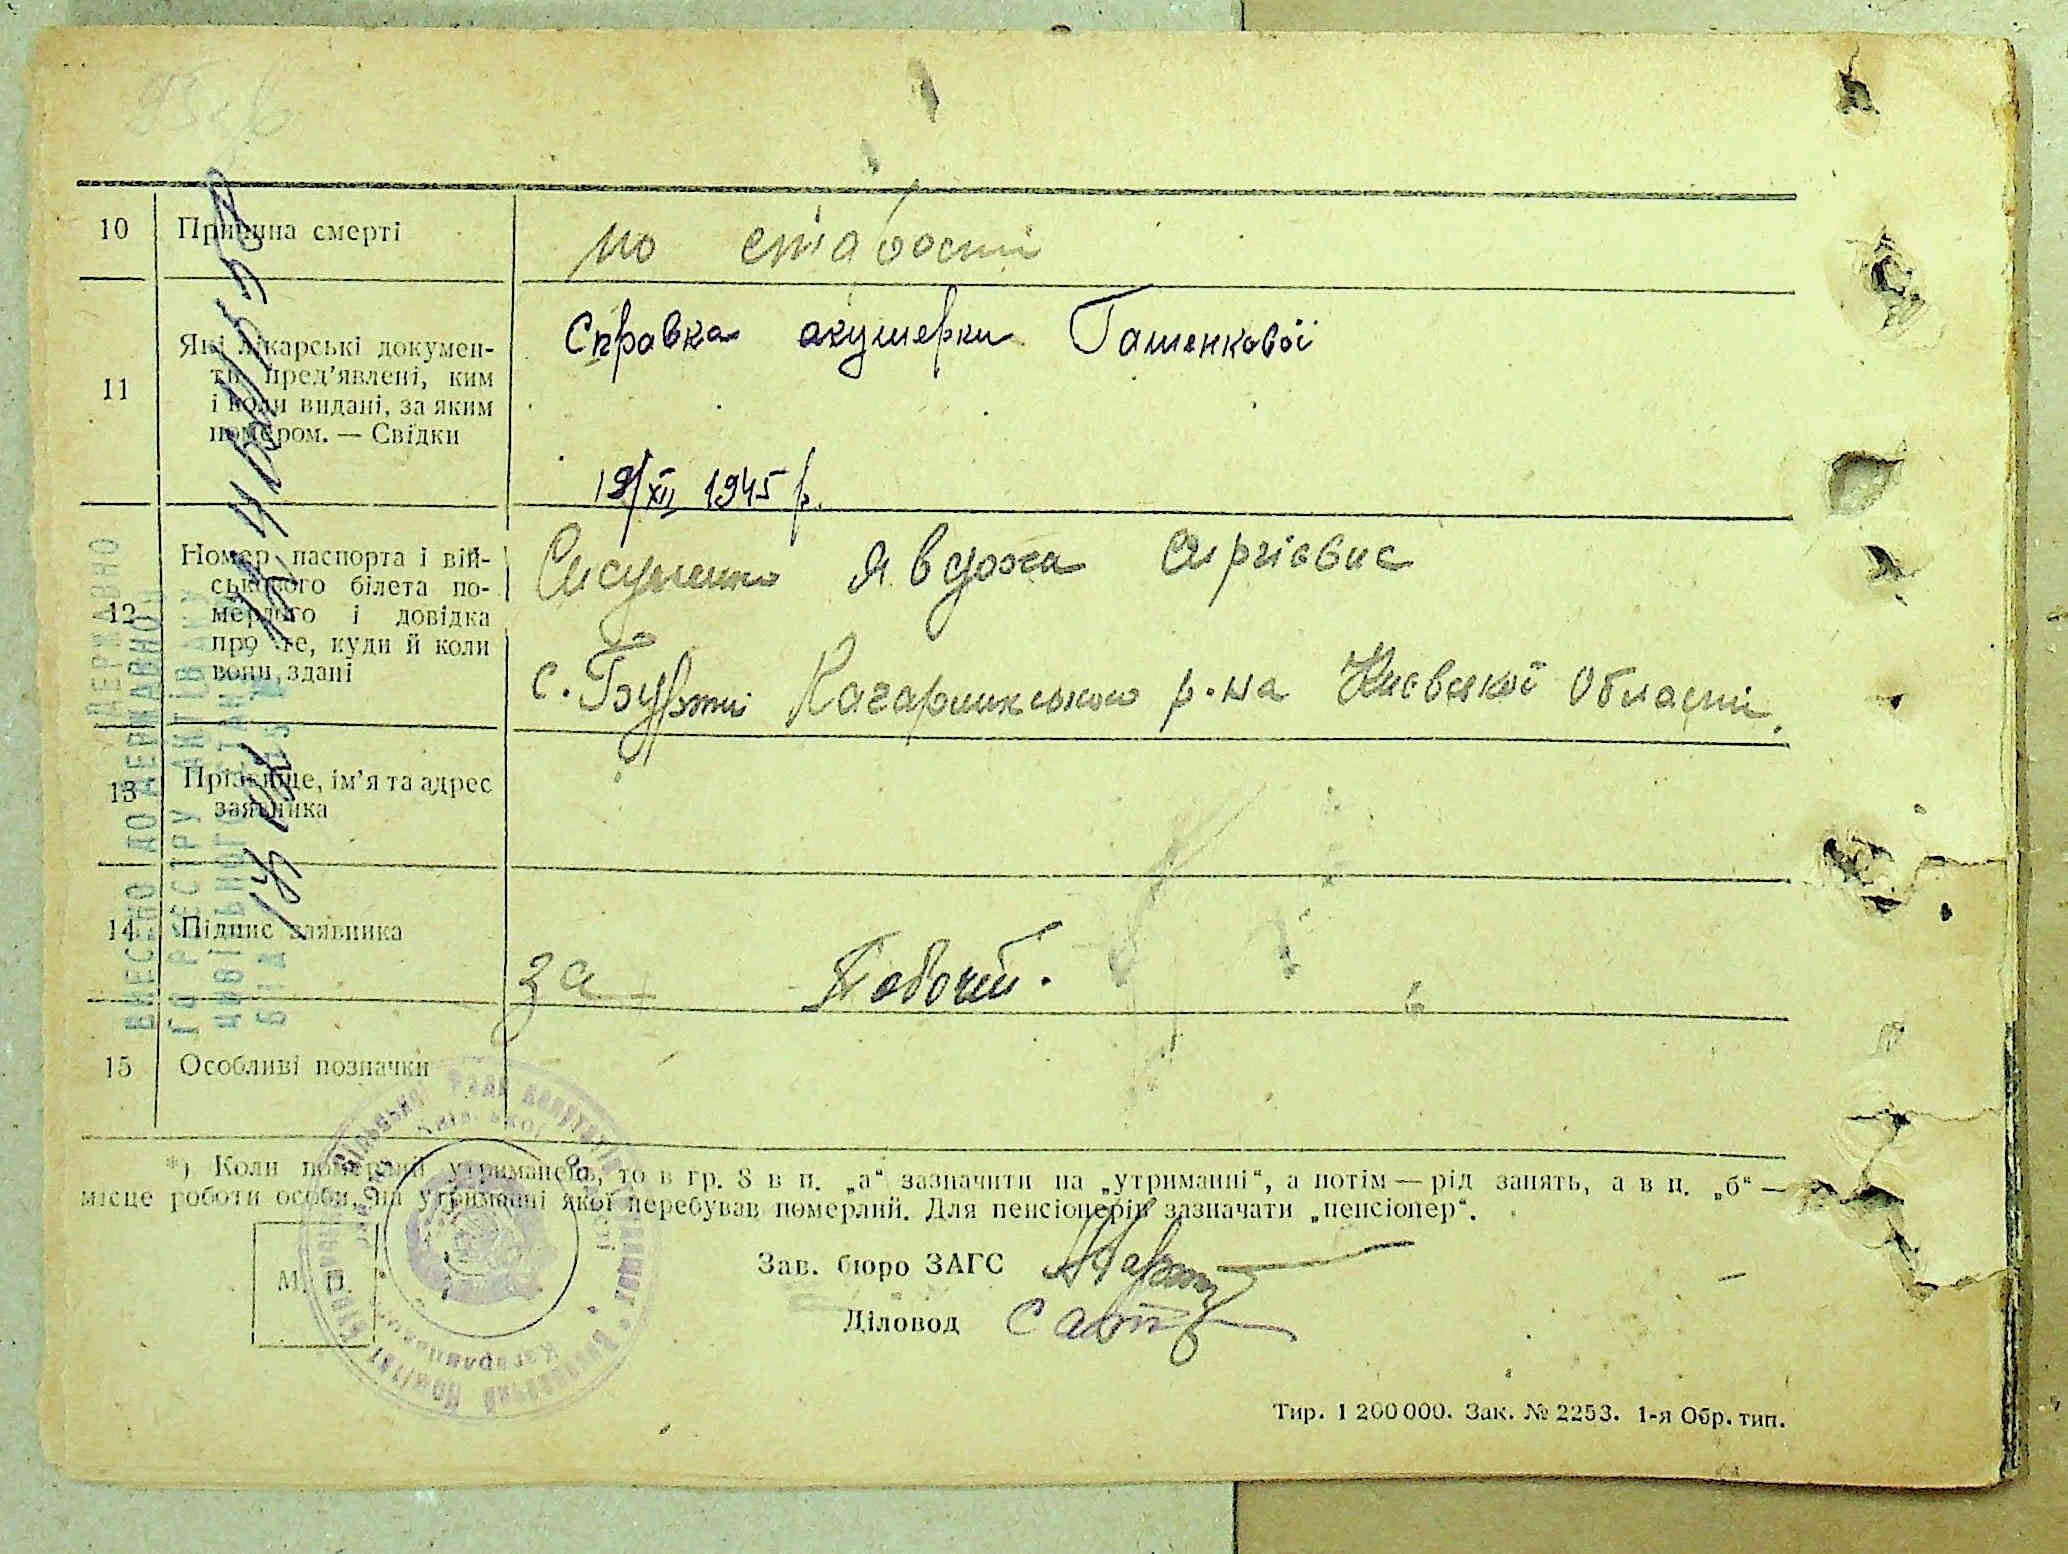 10 Причина смерті по стабості
11 Які лікарські докумен-
ти пред'явлені, ким
і коли видані, за яким
номером. — Свідки
Справка акушерки Гашенкової
19/XII 1945 р.
12 Номер паспорта і вій-
ськового білета по-
мерлого і довідка
про те, куди й коли
вони здані
Явдоха
с. Бурти Кагарликського р-на Києвської області.
13 Прізвище, ім'я та адрес
заявника
14 Підпис заявника
за
15 Особливі позначки
*) Коли померлий утриманець, то в гр. 8 в п. „а“ зазначити на „утриманні“, а потім — рід занять, а в п. „б“ —
місце роботи особи, на утриманні якої перебував померлий. Для пенсіонерів зазначати „пенсіонер“.
М. П.
Зав. бюро ЗАГС
Діловод
Тир. 1 200 000. Зак. № 2253. 1-я Обр. тип.
ВНЕСЕНО ДО ДЕРЖАВНО
ГО РЕЄСТРУ АКТІВ
ЦИВІЛЬНОГО СТАНУ